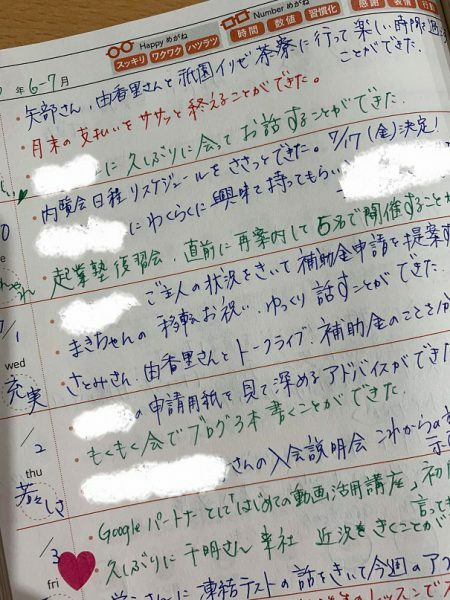 Happy めがね
スッキリ ワクワク ハツラツ
Number めがね
時間 数値 習慣化
感謝 表情
年 6-7 月
・矢部さん、由香里さんと祇園イリゼ茶寮に行って楽しい時間過
ことができた.
・月末の支払いをササッと終えることができた。
に久しぶりに会ってお話することができた.
内覧会日程リスケジュールをささっとできた。 7/17 (金)決定!
にわくらくに興味を持ってもらい
起業塾復習会、直前に再案内して5名で開催すること
ご主人の状況をきいて補助金申請を提案す
・まきちゃんの移転お祝い. ゆっくり話すことができた.
・さとみさん. 由香里さんとトークライブ. 補助金のことを
wed
充実
の申請用紙を見て深めるアドバイスができた
・もくもく会でブログ3本書くことができた.
2
thu
さんの入会説明会 これからの
若々しさ
・Google パートナーとして「はじめての動画活用講座」初
言って
・久しぶりに千明さん来社 近況をきくことが
3
fri
に凍結テストの話をきいて今週の